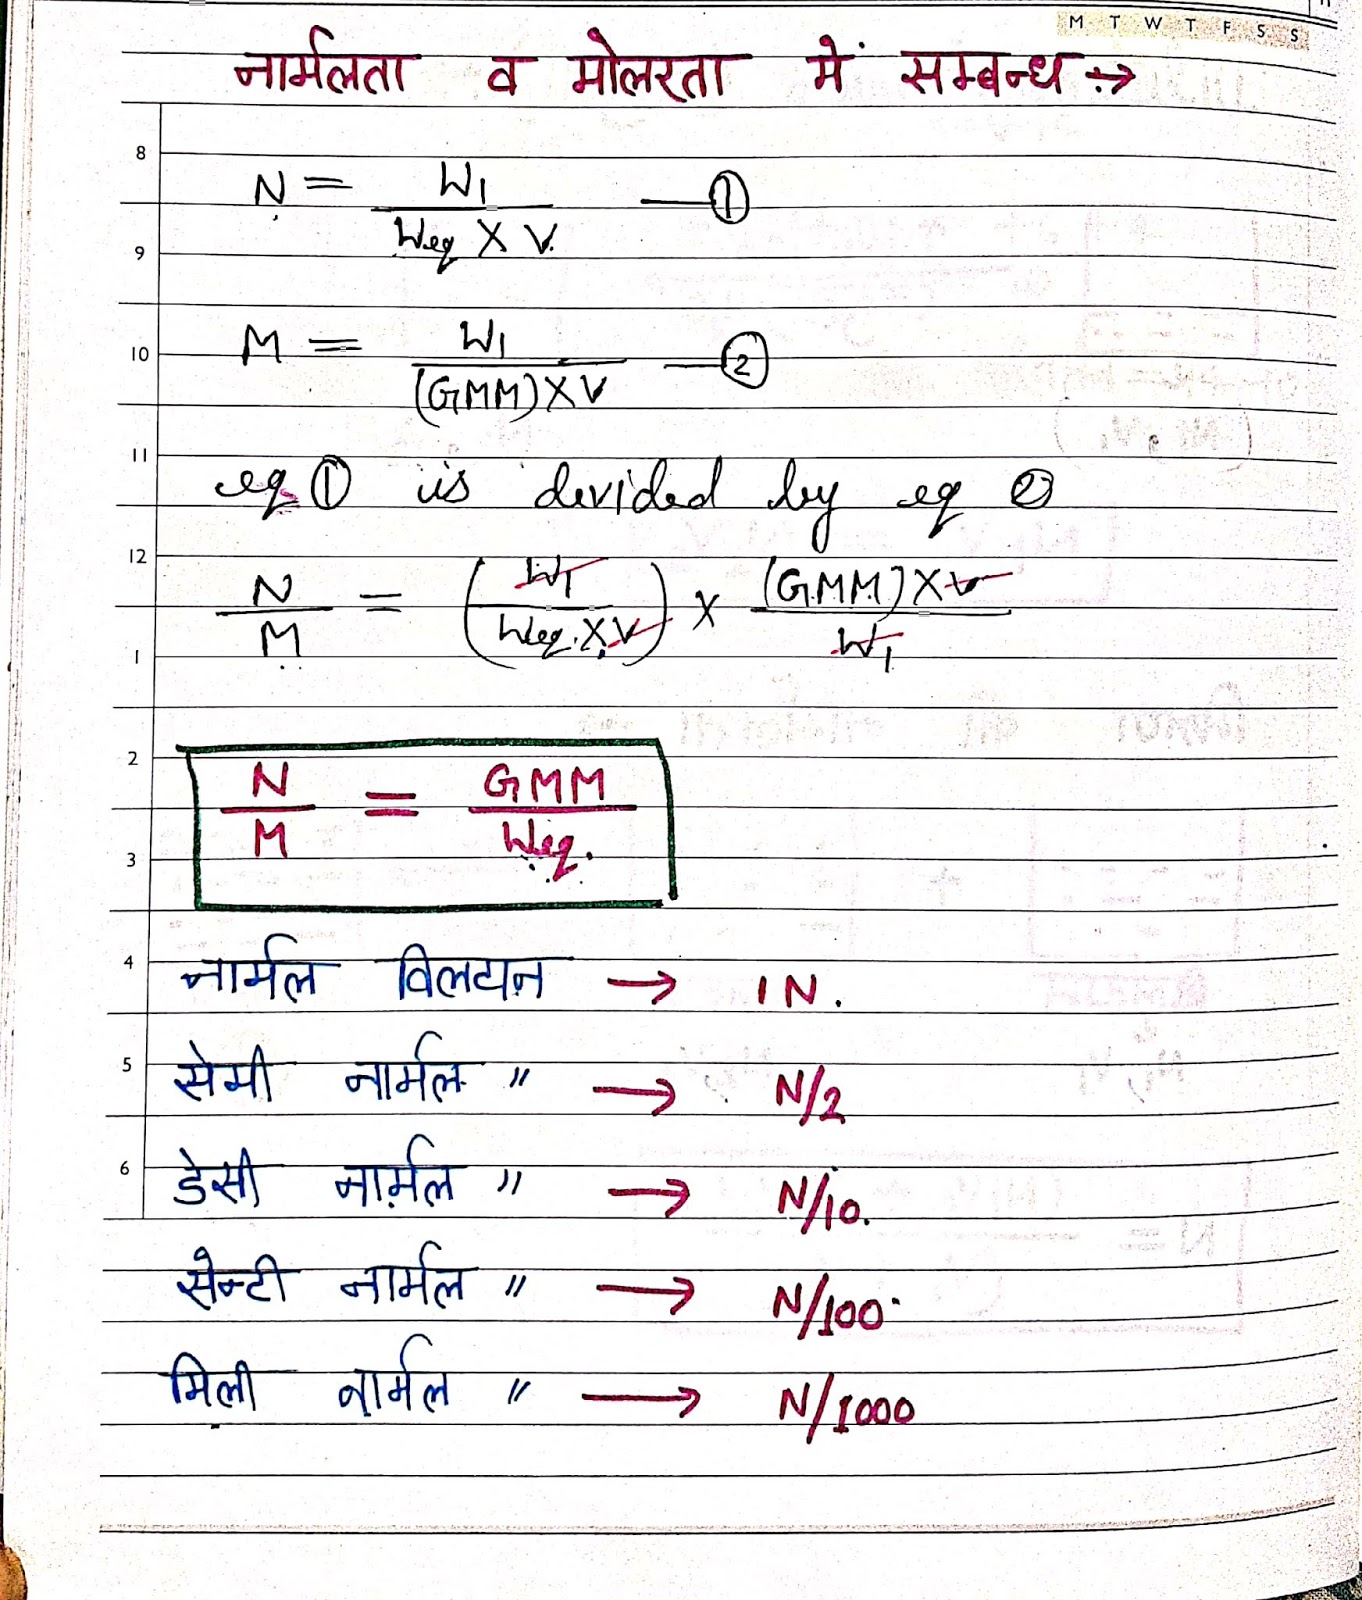 M T W T F S S
नार्मलता व मोलरता में सम्बन्ध →
8
N = W₁ / Weq X V. — ①
9
10
M = W₁ / (GMM) X V — ②
11
eq ① is devided by eq ②
12
N / M = (W₁ / Weq. X V) X (GMM) X V / W₁
1
2
N / M = GMM / Weq.
3
4
नार्मल विलयन → 1 N.
5
सेमी नार्मल " → N/2
6
डेसी नार्मल " → N/10.
सेन्टी नार्मल " → N/100
मिली नार्मल " → N/1000